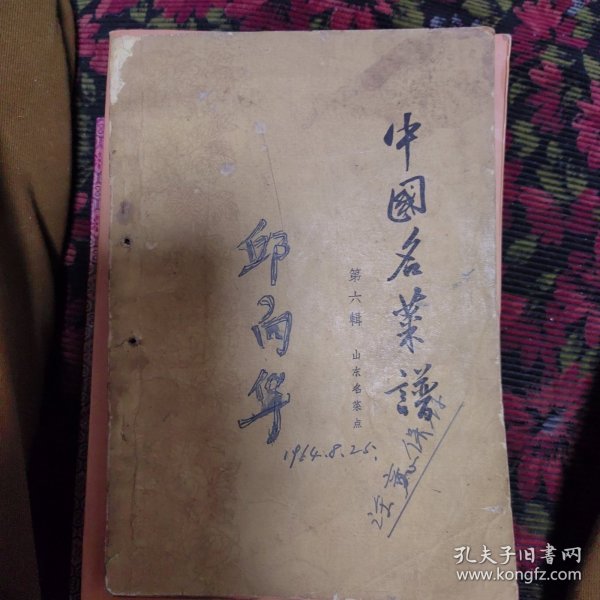 中國名菜譜
第六輯 山东名菜点
邱向华
1964.8.25.
注意保存
孔夫子旧书网
www.kongfz.com